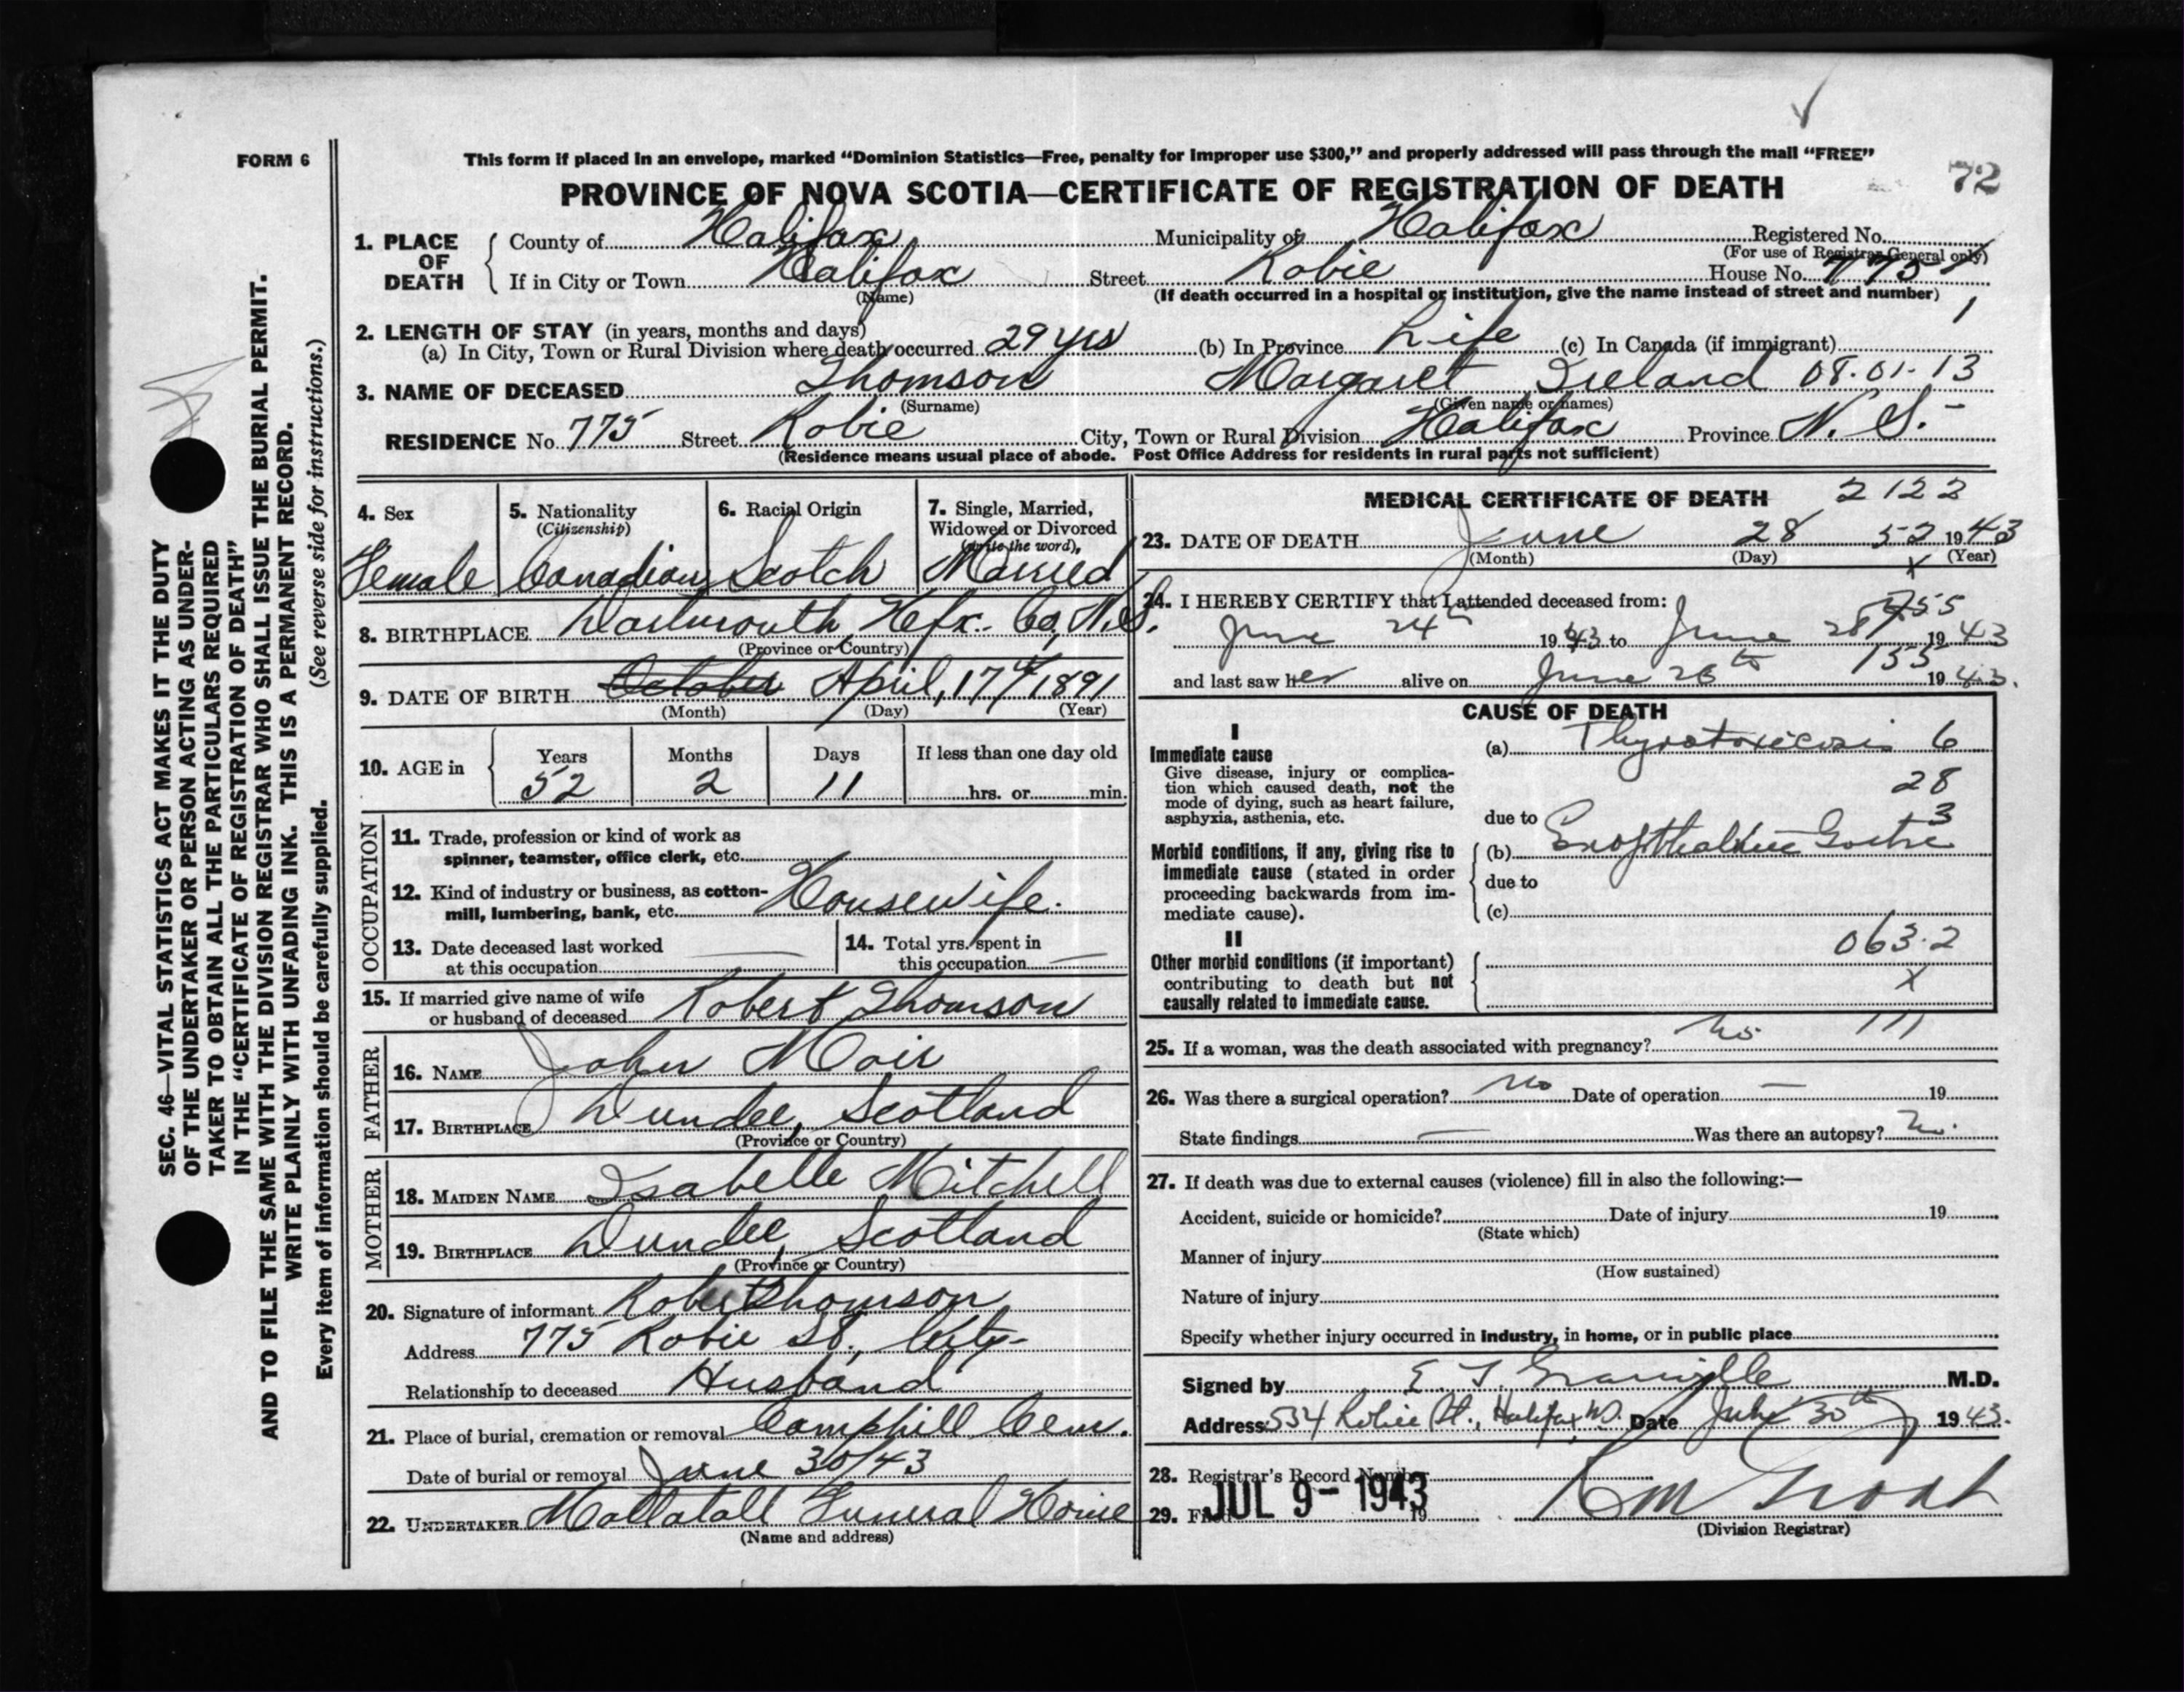 FORM 6
This form if placed in an envelope, marked "Dominion Statistics—Free, penalty for improper use $300," and properly addressed will pass through the mail "FREE"
72
PROVINCE OF NOVA SCOTIA—CERTIFICATE OF REGISTRATION OF DEATH
1. PLACE OF DEATH
County of Halifax Municipality of Halifax Registered No.
(For use of Registrar General only)
If in City or Town Halifax Street Robie House No. 775
(Name) (If death occurred in a hospital or institution, give the name instead of street and number)
1
2. LENGTH OF STAY (in years, months and days)
(a) In City, Town or Rural Division where death occurred 29 yrs (b) In Province Life (c) In Canada (if immigrant)
3. NAME OF DECEASED Thomson Margaret Ireland 08.01.13
(Surname) (Given name or names)
RESIDENCE No. 775 Street Robie City, Town or Rural Division Halifax Province N. S.
(Residence means usual place of abode. Post Office Address for residents in rural parts not sufficient)
4. Sex
Female
5. Nationality
(Citizenship)
Canadian
6. Racial Origin
Scotch
7. Single, Married,
Widowed or Divorced
(write the word),
Married
8. BIRTHPLACE Dartmouth, Hfx. Co, N.S.
(Province or Country)
9. DATE OF BIRTH October April, 17th 1891
(Month) (Day) (Year)
10. AGE in
Years Months Days If less than one day old
52 2 11 hrs. or min.
OCCUPATION
11. Trade, profession or kind of work as
spinner, teamster, office clerk, etc.
12. Kind of industry or business, as cotton-
mill, lumbering, bank, etc. Housewife.
13. Date deceased last worked
at this occupation —
14. Total yrs. spent in
this occupation —
15. If married give name of wife
or husband of deceased Robert Thomson
FATHER
16. NAME John Moir
17. BIRTHPLACE Dundee, Scotland
(Province or Country)
MOTHER
18. MAIDEN NAME Isabelle Mitchell
19. BIRTHPLACE Dundee, Scotland
(Province or Country)
20. Signature of informant Robert Thomson
Address 775 Robie St., City-
Relationship to deceased Husband
21. Place of burial, cremation or removal Camphill Cem.
Date of burial or removal June 30/43
22. UNDERTAKER Mattatall Funeral Home
(Name and address)
MEDICAL CERTIFICATE OF DEATH 2122
23. DATE OF DEATH June 28 52 1943
(Month) (Day) (Year)
x
24. I HEREBY CERTIFY that I attended deceased from:
55
June 24th 1943 to June 28 1943
and last saw her alive on June 26th 155 1943.
CAUSE OF DEATH
I
Immediate cause
Give disease, injury or complica-
tion which caused death, not the
mode of dying, such as heart failure,
asphyxia, asthenia, etc.
(a) Thyrotoxicosis 6
28
due to 3
Morbid conditions, if any, giving rise to
immediate cause (stated in order
proceeding backwards from im-
mediate cause).
(b) Exofthalmic Goitre
due to
(c)
063.2
II
Other morbid conditions (if important)
contributing to death but not
causally related to immediate cause.
x
25. If a woman, was the death associated with pregnancy? No 111
26. Was there a surgical operation? no Date of operation — 19
State findings — Was there an autopsy? No.
27. If death was due to external causes (violence) fill in also the following:—
Accident, suicide or homicide? Date of injury 19
(State which)
Manner of injury
(How sustained)
Nature of injury
Specify whether injury occurred in industry, in home, or in public place
Signed by E. T. Granville M.D.
Address 534 Robie St., Halifax, N.S. Date July 30th 1943.
28. Registrar's Record Number
29. Filed JUL 9- 1943 19
(Division Registrar)
SEC. 46—VITAL STATISTICS ACT MAKES IT THE DUTY
OF THE UNDERTAKER OR PERSON ACTING AS UNDER-
TAKER TO OBTAIN ALL THE PARTICULARS REQUIRED
IN THE "CERTIFICATE OF REGISTRATION OF DEATH"
AND TO FILE THE SAME WITH THE DIVISION REGISTRAR WHO SHALL ISSUE THE BURIAL PERMIT.
WRITE PLAINLY WITH UNFADING INK. THIS IS A PERMANENT RECORD.
Every item of information should be carefully supplied. (See reverse side for instructions.)